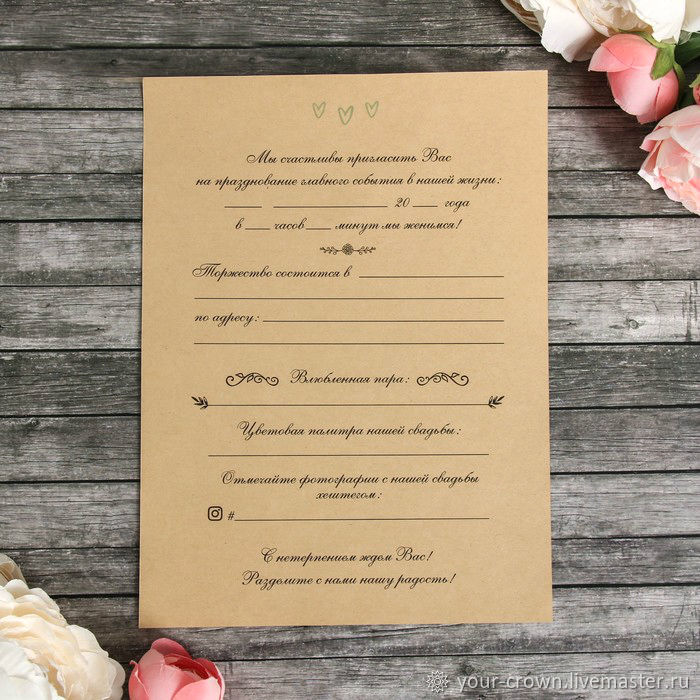 Мы счастливы пригласить Вас
на празднование главного события в нашей жизни:
____ ____________ 20 ___ года
в ___ часов ___ минут мы женимся!
Торжество состоится в ________________
________________________________
по адресу: __________________________
________________________________
Влюбленная пара:
________________________________
Цветовая палитра нашей свадьбы:
________________________________
Отмечайте фотографии с нашей свадьбы
хештегом:
#____________________________
С нетерпением ждем Вас!
Разделите с нами нашу радость!
your-crown.livemaster.ru